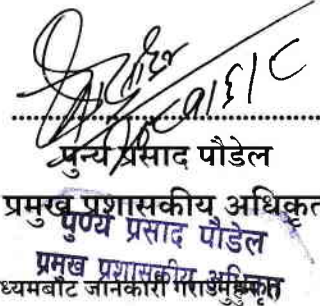 पुन्य प्रसाद पौडेल
प्रमुख प्रशासकीय अधिकृत
पुण्य प्रसाद पौडेल
प्रमुख प्रशासकीय अधिकृत
ध्यमबाट जानकारी गराउनुहुन